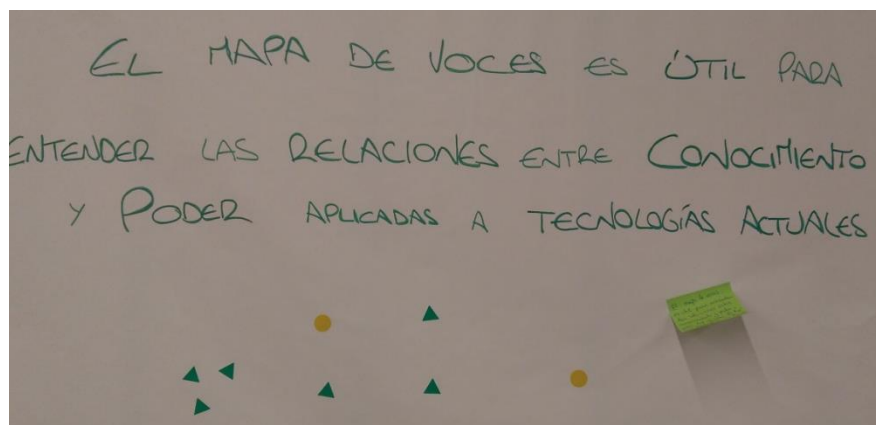 EL MAPA DE VOCES ES ÚTIL PARA
ENTENDER LAS RELACIONES ENTRE CONOCIMIENTO
Y PODER APLICADAS A TECNOLOGÍAS ACTUALES